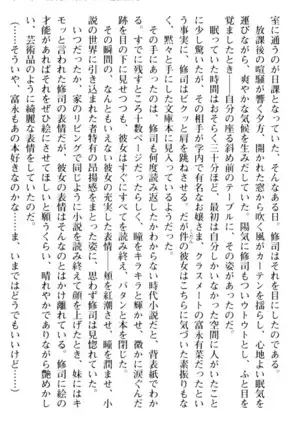 室に通うのが日課となっていた。そんなある日、修司はそれを目にしたのである。
放課後の喧騒が響く夕方、開かれた窓から吹く風がカーテンを揺らし、心地よい眠気を
運びながら、爽やかな気候を生みだしていた。陽気に修司もついウトウトし、ふと目を
覚ましたとき――自分の座る斜め前のテーブルに、その姿があったのだ。
眠っていた時間はおそらく三十分ほど、最初は自分しかいなかった空間に人がいたこと
に少し驚いたが、その相手が学内で有名なお嬢さま、クラスメートの富永有菜だったとい
う事実に、修司はビクッと肩を跳ねさせる。だが件の彼女はこちらに気づいた素振りもな
く、黙々と手にした文庫本に見入っているようだった。
その手にあったのは、修司も何度読み返したかわからない時代小説だと、背表紙でわか
る。すでに残すところ十数ページだったらしく、瞳をキラキラと輝かせ、微かに涙ぐんだ
跡を目の下に見せつつも、彼女はすぐにすべてを読み終え、パタンと本を閉じた。
その瞬間の、なんともいえない彼女の充実した表情――頬を紅潮させ、瞳を潤ませ、小
説の世界に引き込まれた者特有の昂揚感をまとった姿に、思わず修司は見惚れていた。
いつだったか、家のリビングで同じように小説を読み終えて顔を上げたとき、妹にはキ
モッと言われた修司の表情だが、彼女の表情はそんなのとはかけ離れている。修司に絵の
才能があればそれをぜひ絵にさせてほしいと願うくらい、晴れやかでありながら艶めかし
い、芸術品のように綺麗な表情をしていたのだ。
(……そういや、富永もあの本好きなのかな……ま、いまではどうでもいいけど……)